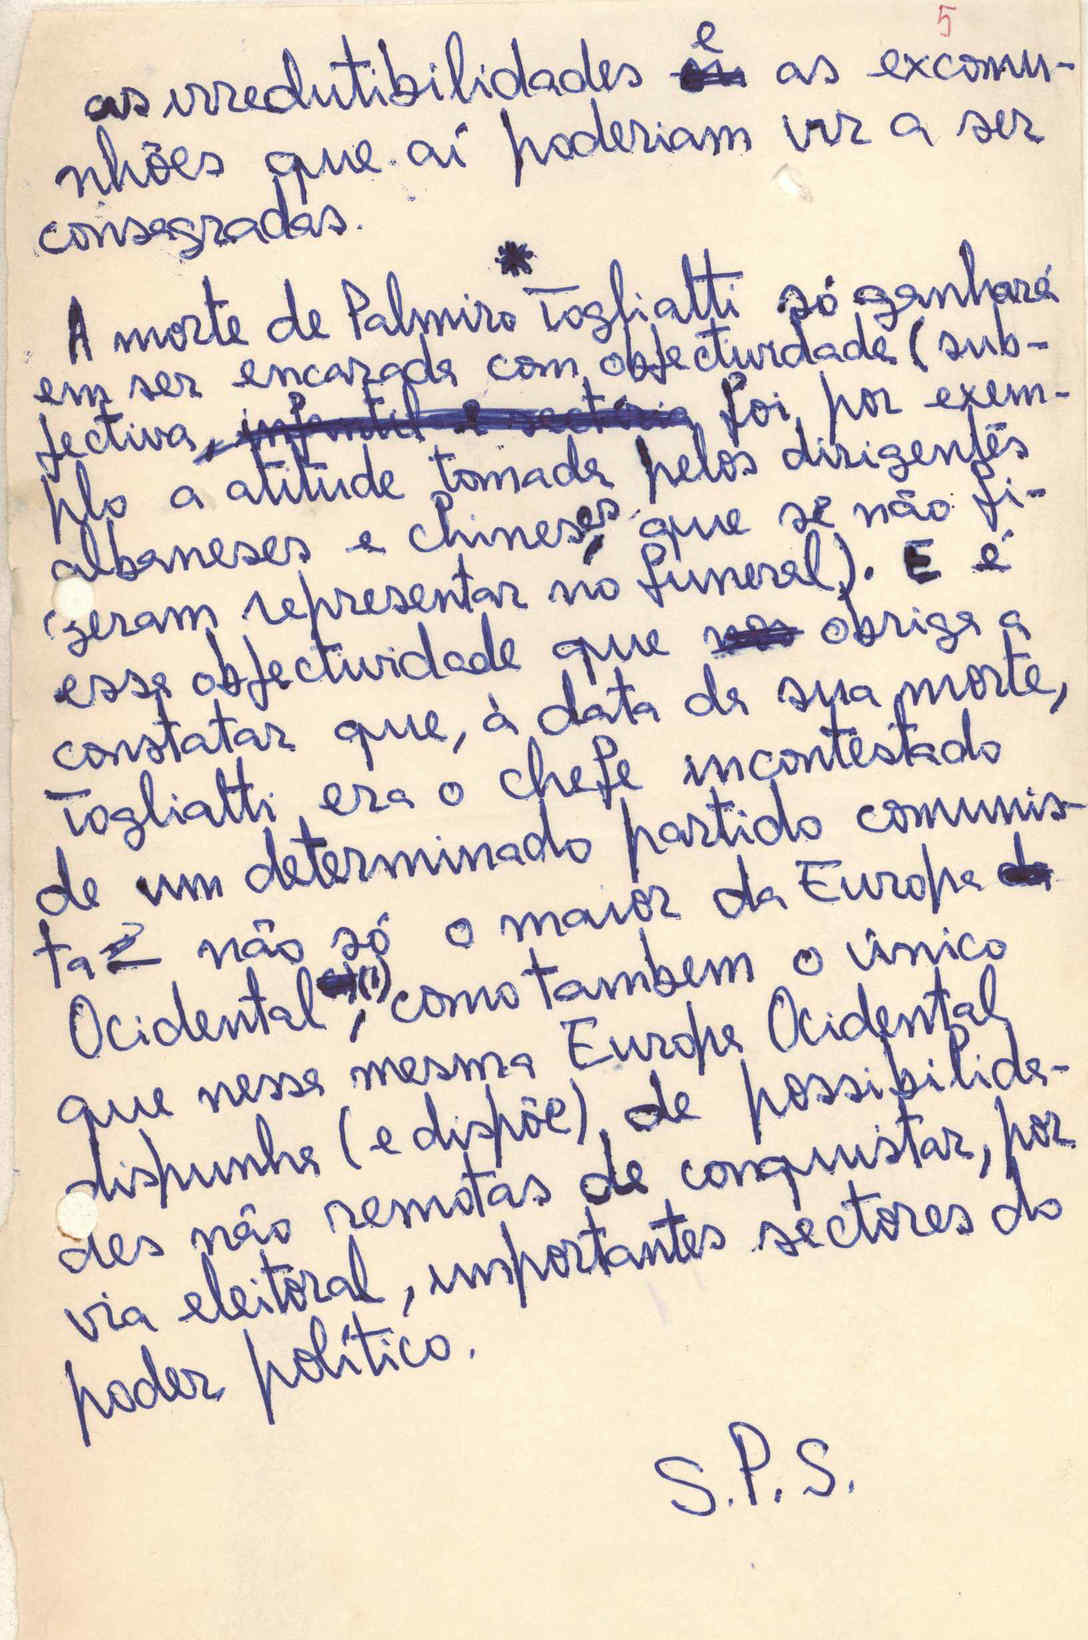 5
as irredutibilidades e as excomu-
nhões que aí poderiam vir a ser
consagradas.
*
A morte de Palmiro Togliatti só ganhará
em ser encarada com objectividade (sub-
jectiva, infantil e sectária foi, por exem-
plo a atitude tomada pelos dirigentes
albaneses e chineses, que se não fi-
zeram representar no funeral). E é
essa objectividade que nos obriga a
constatar que, à data da sua morte,
Togliatti era o chefe incontestado
de um determinado partido comunis-
ta – não só o maior da Europa
Ocidental (1), como tambem o único
que nessa mesma Europa Ocidental
dispunha (e dispõe) de possibilida-
des não remotas de conquistar, por
via eleitoral, importantes sectores do
poder político.
S.P.S.